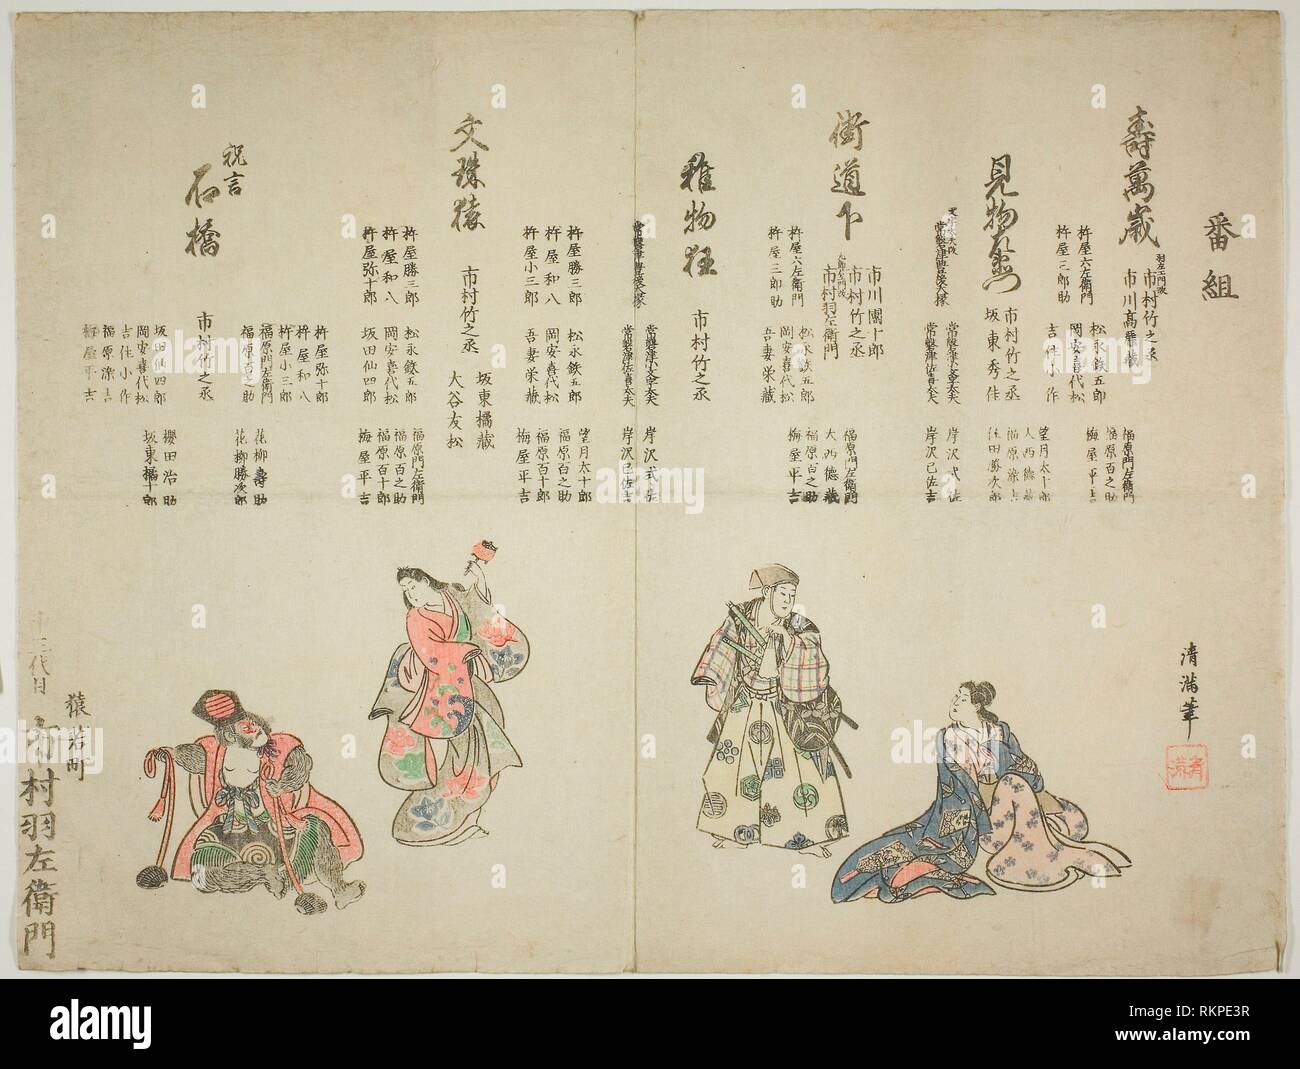 番組
壽萬歳
市村竹之丞
市川高麗藏
杵屋六左衛門
杵屋三郎助
松永鉄五郎
岡安喜代松
吉住小作
福原門左衛門
福原百之助
梅屋平吉
見物左衛門
市村竹之丞
坂東秀佳
望月太十郎
大西徳藏
福原漆吉
住田勝次郎
常磐津豊後大掾
常磐津小文字太夫
常磐津佐喜太夫
岸沢式佐
岸沢巳佐吉
街道下
市川團十郎
市村竹之丞
市村羽左衛門
杵屋六左衛門
杵屋三郎助
松永鉄五郎
岡安喜代松
吾妻栄藏
福原門左衛門
大西徳藏
福原百之助
梅屋平吉
雅物狂
市村竹之丞
常磐津豊後大掾
常磐津小文字太夫
常磐津佐喜太夫
岸沢式佐
岸沢巳佐吉
杵屋勝三郎
杵屋和八
杵屋小三郎
松永鉄五郎
岡安喜代松
吾妻栄藏
望月太十郎
福原百之助
福原百十郎
梅屋平吉
文珠猿
市村竹之丞
坂東橘藏
大谷友松
杵屋勝三郎
杵屋和八
杵屋弥十郎
松永鉄五郎
岡安喜代松
坂田仙四郎
福原門左衛門
福原百之助
福原百十郎
梅屋平吉
祝言
石橋
市村竹之丞
杵屋弥十郎
杵屋和八
杵屋小三郎
福原門左衛門
福原百之助
花柳壽助
花柳勝次郎
坂田仙四郎
岡安喜代松
吉住小作
福原漆吉
梅屋平吉
櫻田治助
坂東橘十郎
清満筆
清満
猿若町
十三代目
市村羽左衛門
alamy
Image ID: RKPE3R
www.alamy.com